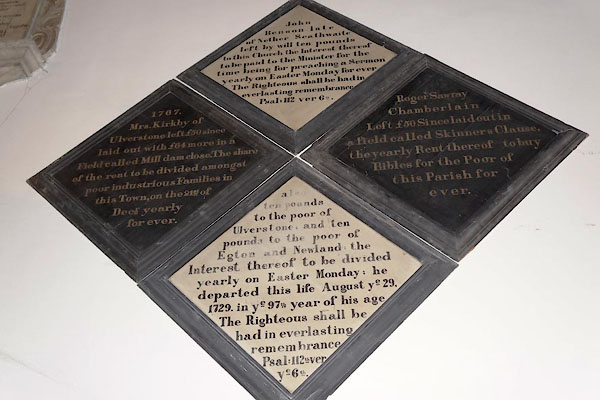 John
Benson late
of Nether Scathwaite
left by will ten pounds
to this Church the Interest thereof
to be paid to the Minister for the
time being for preaching a Sermon
yearly on Easter Monday for ever
The Righteous shall be had in
everlasting remembrance
Psal: 112 ver 6th.
1767.
Mrs. Kirkby of
Ulverstone left £50 since
laid out with £64 more in a
Field called Mill dam close. The share
of the rent to be divided amongst
poor industrious Families in
this Town, on the 21st of
Decr yearly
for ever.
Roger Sawrey
Chamberlain
Left £50 Since laid out in
a field called Skinners Clause
the yearly Rent thereof to buy
Bibles for the Poor of
this Parish for
ever.
also
ten pounds
to the poor of
Ulverstone; and ten
pounds to the poor of
Egton and Newland: the
Interest thereof to be divided
yearly on Easter Monday; he
departed this life August ye 29,
1729. in ye 97th year of his age
The Righteous shall be
had in everlasting
remembrance
Psal: 112th ver
ye 6th.